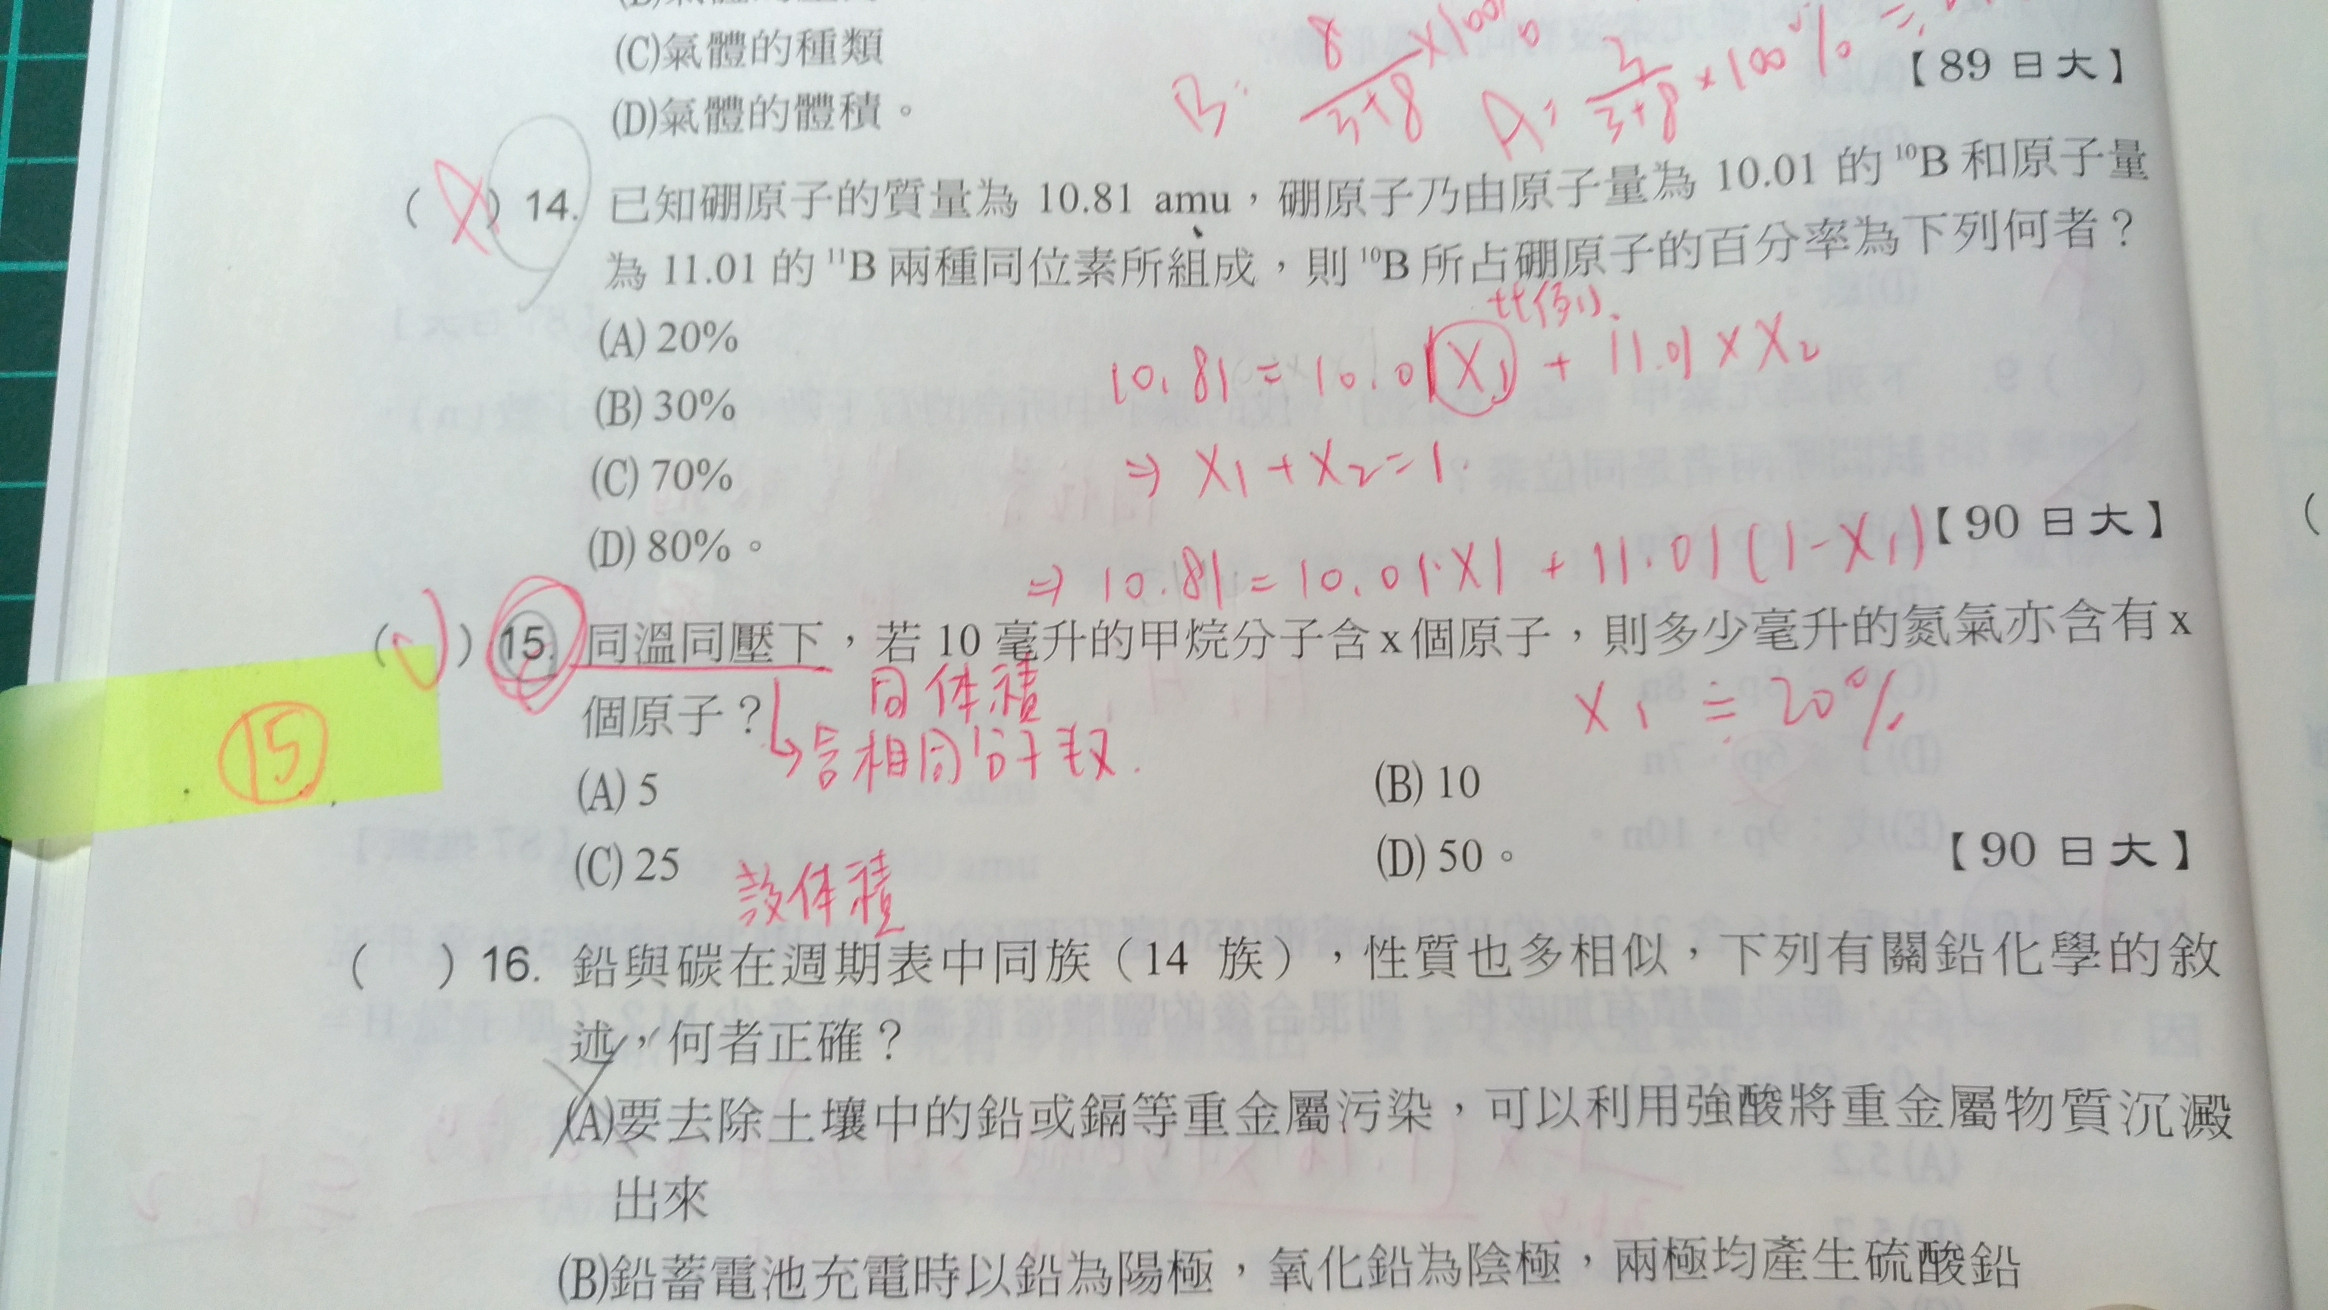 (C)氣體的種類
(D)氣體的體積。
【89 日大】
B: 8/3+8 ×100%
A: 3/3+8 ×100%
(A) 14. 已知硼原子的質量為 10.81 amu，硼原子乃由原子量為 10.01 的 ¹⁰B 和原子量
為 11.01 的 ¹¹B 兩種同位素所組成，則 ¹⁰B 所占硼原子的百分率為下列何者？
比例
(A) 20%
10.81 = 10.01 X₁ + 11.01 × X₂
(B) 30%
(C) 70%
⇒ X₁ + X₂ = 1.
(D) 80%。
【90 日大】
⇒ 10.81 = 10.01·X1 + 11.01 (1-X₁)
(C) 15. 同溫同壓下，若 10 毫升的甲烷分子含 x 個原子，則多少毫升的氮氣亦含有 x
個原子？
同体積
含相同分子数.
X₁ ≒ 20%
15
(A) 5
(B) 10
(C) 25
(D) 50。
【90 日大】
設体積
( ) 16. 鉛與碳在週期表中同族（14 族），性質也多相似，下列有關鉛化學的敘
述，何者正確？
(A)要去除土壤中的鉛或鎘等重金屬污染，可以利用強酸將重金屬物質沉澱
出來
(B)鉛蓄電池充電時以鉛為陽極，氧化鉛為陰極，兩極均產生硫酸鉛